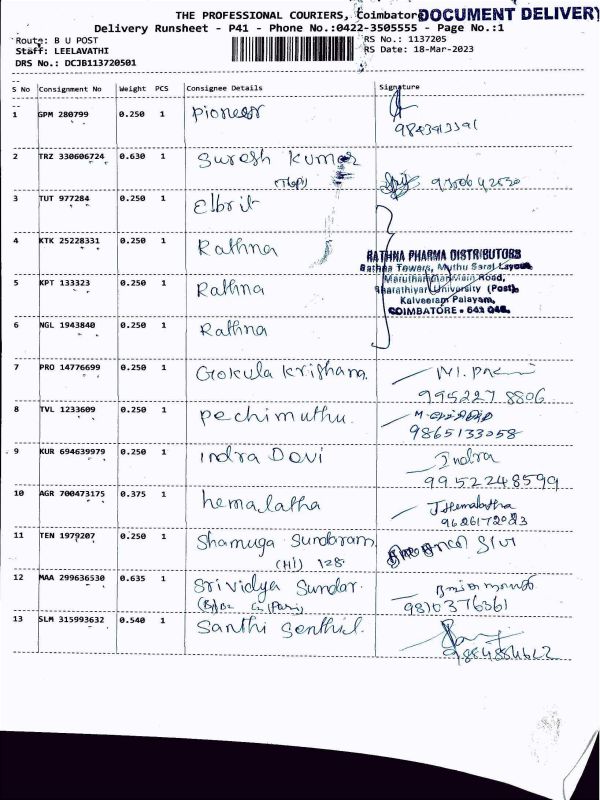 THE PROFESSIONAL COURIERS, Coimbatore
DOCUMENT DELIVERY
Delivery Runsheet - P41 - Phone No.:0422-3505555 - Page No.:1
Route: B U POST
RS No.: 1137205
Staff: LEELAVATHI
RS Date: 18-Mar-2023
DRS No.: DCJB113720501
S No Consignment No Weight PCS Consignee Details Signature
1 GPM 280799 0.250 1 Pioneer
9843913391
2 TRZ 330606724 0.630 1 Suresh Kumar
3 TUT 977284 0.250 1 Elbrit
4 KTK 25228331 0.250 1 Rathna
RATHNA PHARMA DISTRIBUTORS
Rathna Towers, Muthu Saral Layout,
Maruthamalai Main Road,
5 KPT 133323 0.250 1 Rathna
Bharathiyar University (Post),
Kalveeram Palayam,
COIMBATORE - 641 046.
6 NGL 1943840 0.250 1 Rathna
7 PRO 14776699 0.250 1 Gokula Krishana
995227 8806
8 TVL 1233609 0.250 1 Pechimuthu.
9865133058
9 KUR 694639979 0.250 1 Indra Devi Indra
9952248599
10 AGR 700473175 0.375 1 hemalatha J.Hemalatha
9626172023
11 TEN 1979207 0.250 1 Shamuga Sundaram
(Hi) 128
12 MAA 299636530 0.635 1 Srividya Sundar.
9810376361
13 SLM 315993632 0.540 1 Santhi Senthil.
9884884622